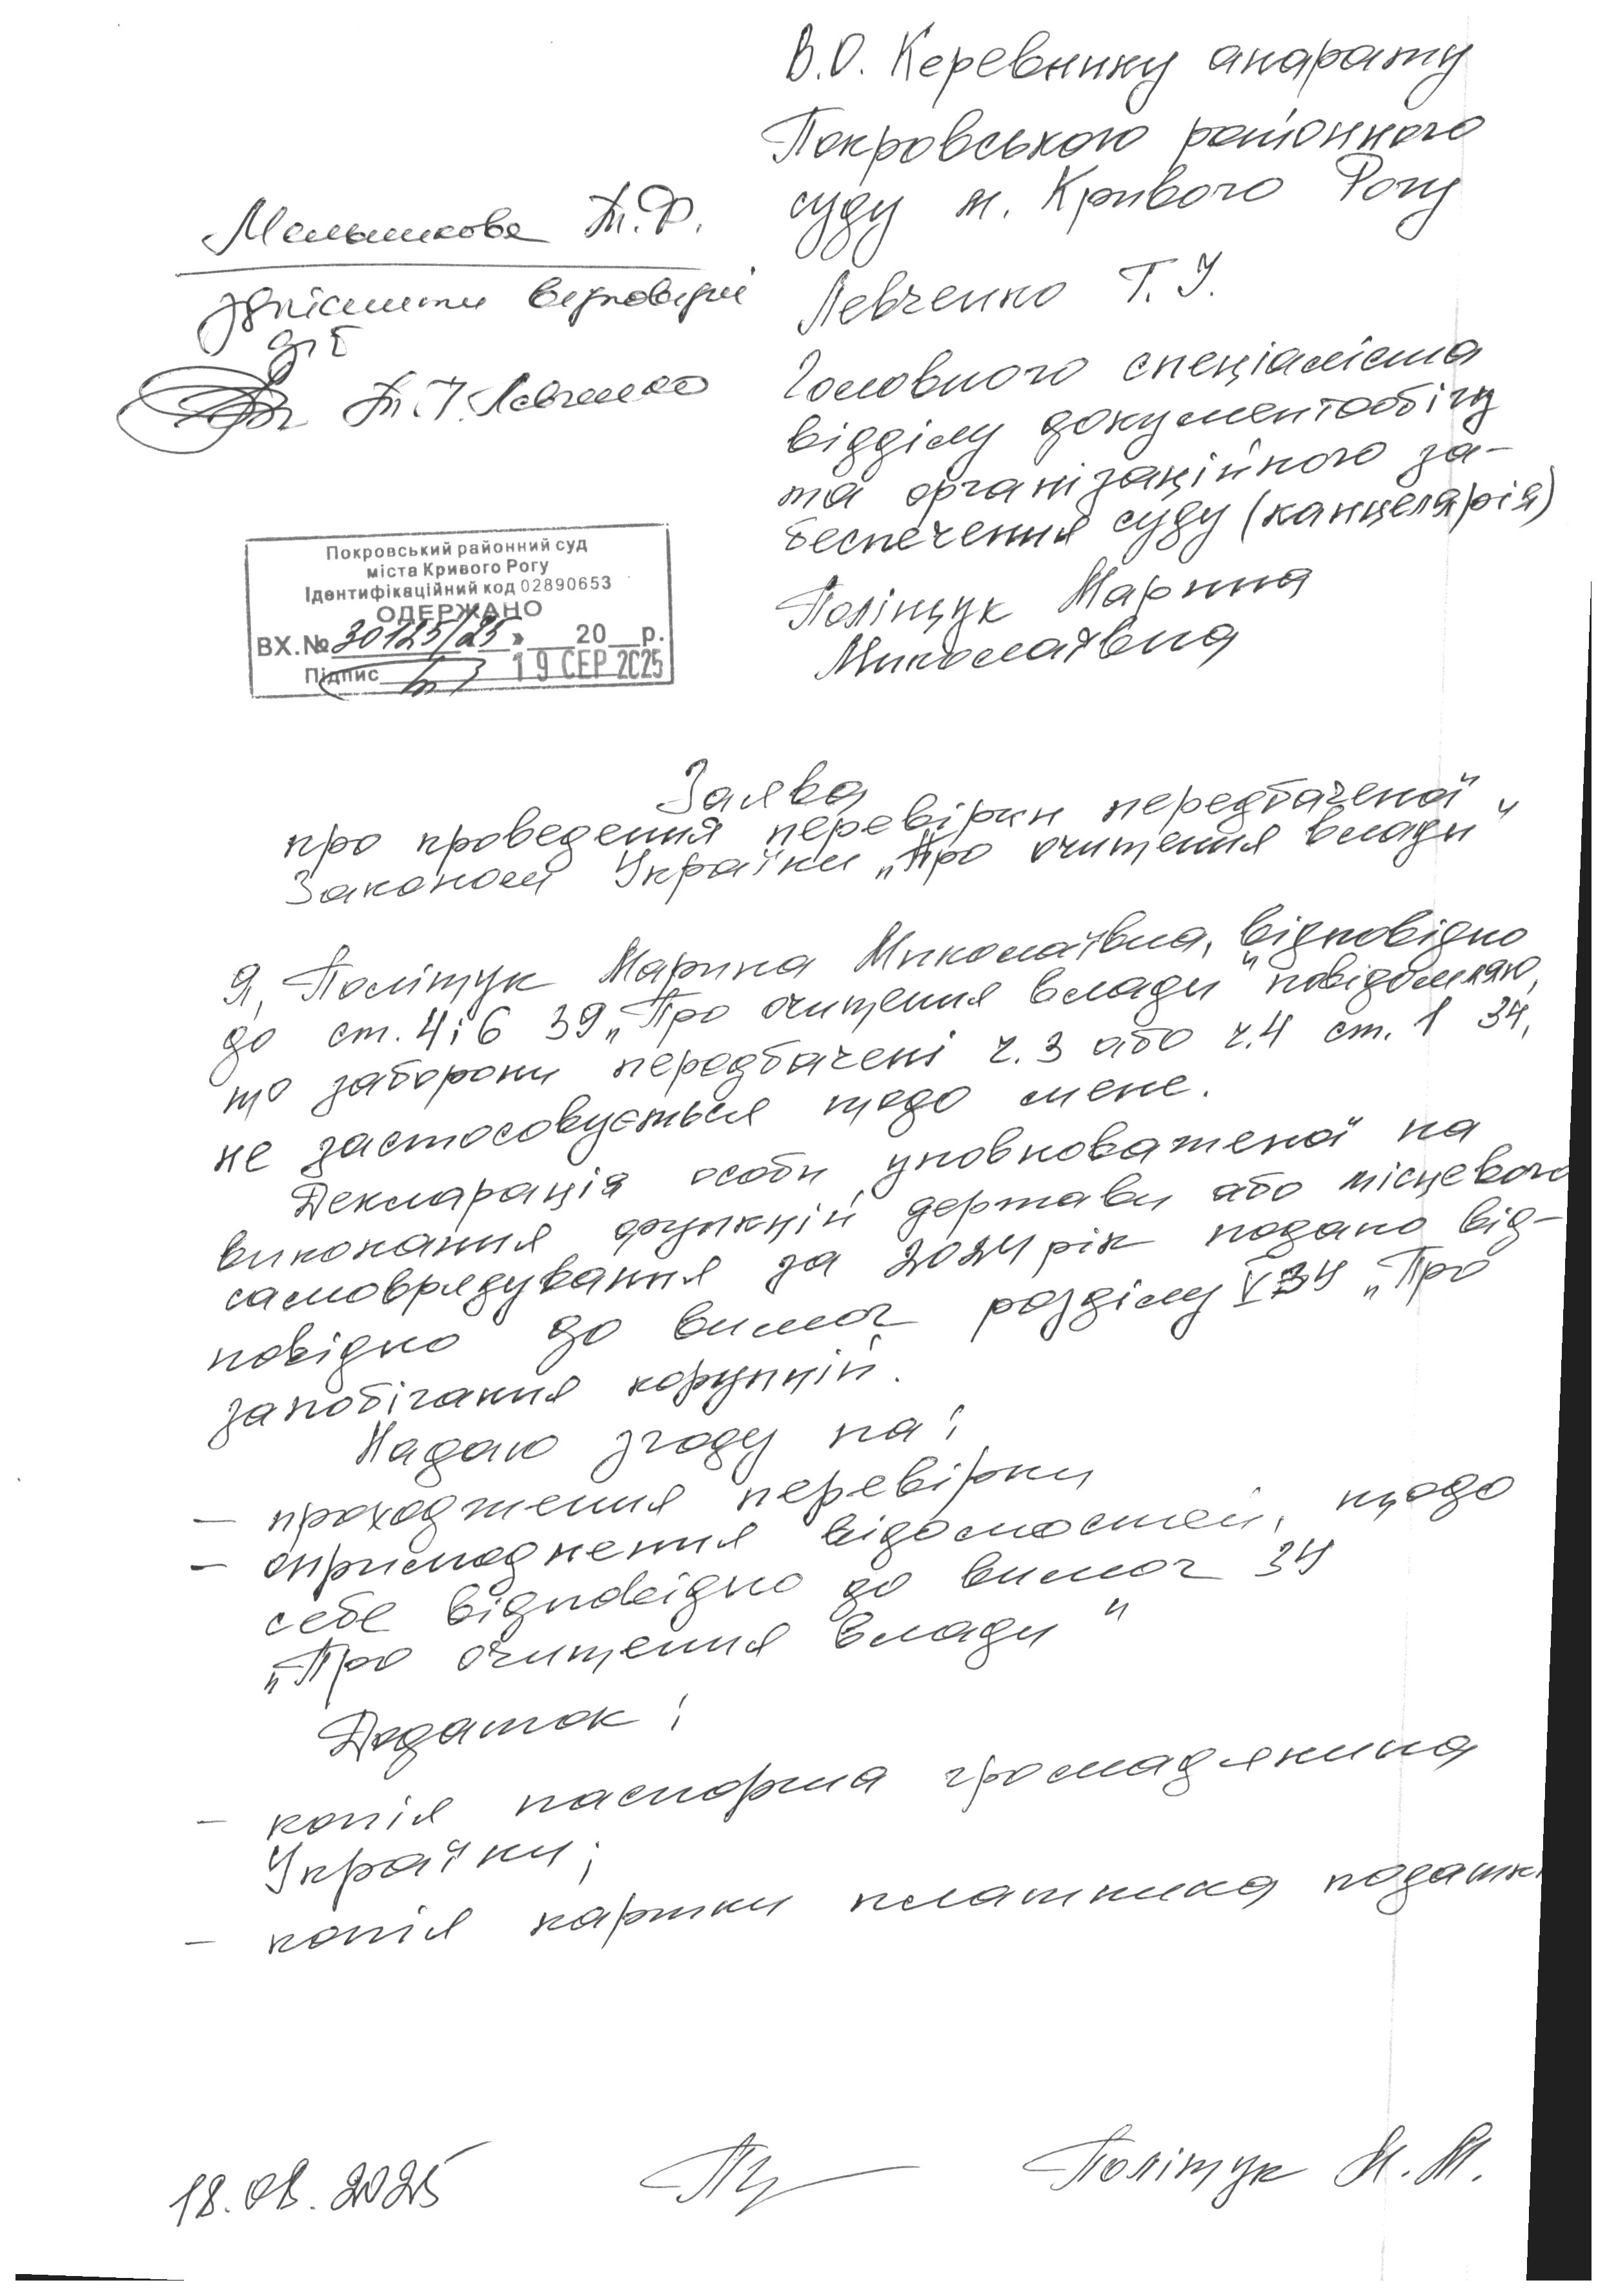 В.О. Керевнику апарату
Покровського районного
суду м. Кривого Рогу
Левченко Т.І.
Головного спеціаліста
відділу документообігу
та організаційного за-
беспечення суду (канцелярія)
Поліщук Марина
Миколаївна
Мельникова Т.Ф.
здійснити відповідні
дії
Т.І. Левченко
Покровський районний суд
міста Кривого Рогу
Ідентифікаційний код 02890653
ОДЕРЖАНО
ВХ.№ 30125/25 » 20 р.
Підпис 19 СЕР 2025
Заява
про проведення перевірки передбаченої
Законом України „Про очищення влади"
Я, Поліщук Марина Миколаївна, відповідно
до ст. 4 і 6 ЗУ „Про очищення влади" повідомляю,
що заборони передбачені ч.3 або ч.4 ст. 1 ЗУ,
не застосовується щодо мене.
Декларація особи уповноваженої на
виконання функцій держави або місцевого
самоврядування за 2024 рік подано від-
повідно до вимог розділу V ЗУ „Про
запобігання корупцій.
Надаю згоду на:
– проходження перевірки
– оприлюднення відомостей, щодо
себе відповідно до вимог ЗУ
„Про очищення влади"
Додаток:
– копія паспорта громадянина
України;
– копія картки платника податкі
18.08.2025 Поліщук М.М.